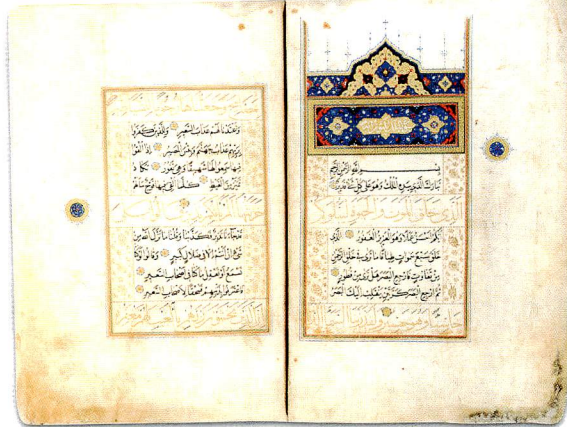 بسم الله الرحمن الرحيم
تبارك الذي بيده الملك وهو على كل شيء قدير
الذي خلق الموت والحيوة ليبلوكم
أيكم أحسن عملا وهو العزيز الغفور الذي
خلق سبع سموات طباقا ما ترى في خلق الرحمن
من تفاوت فارجع البصر هل ترى من فطور
ثم ارجع البصر كرتين ينقلب إليك البصر
خاسئا وهو حسير ولقد زينا السماء
وأعتدنا لهم عذاب السعير وللذين كفروا
بربهم عذاب جهنم وبئس المصير إذا ألقوا
فيها سمعوا لها شهيقا وهي تفور تكاد
تميز من الغيظ كلما ألقي فيها فوج سألهم
جاءنا نذير فكذبنا وقلنا ما نزل الله من
شيء إن أنتم إلا في ضلال كبير وقالوا لو كنا
نسمع أو نعقل ما كنا في أصحاب السعير
فاعترفوا بذنبهم فسحقا لأصحاب السعير
إن الذين يخشون ربهم بالغيب لهم مغفرة